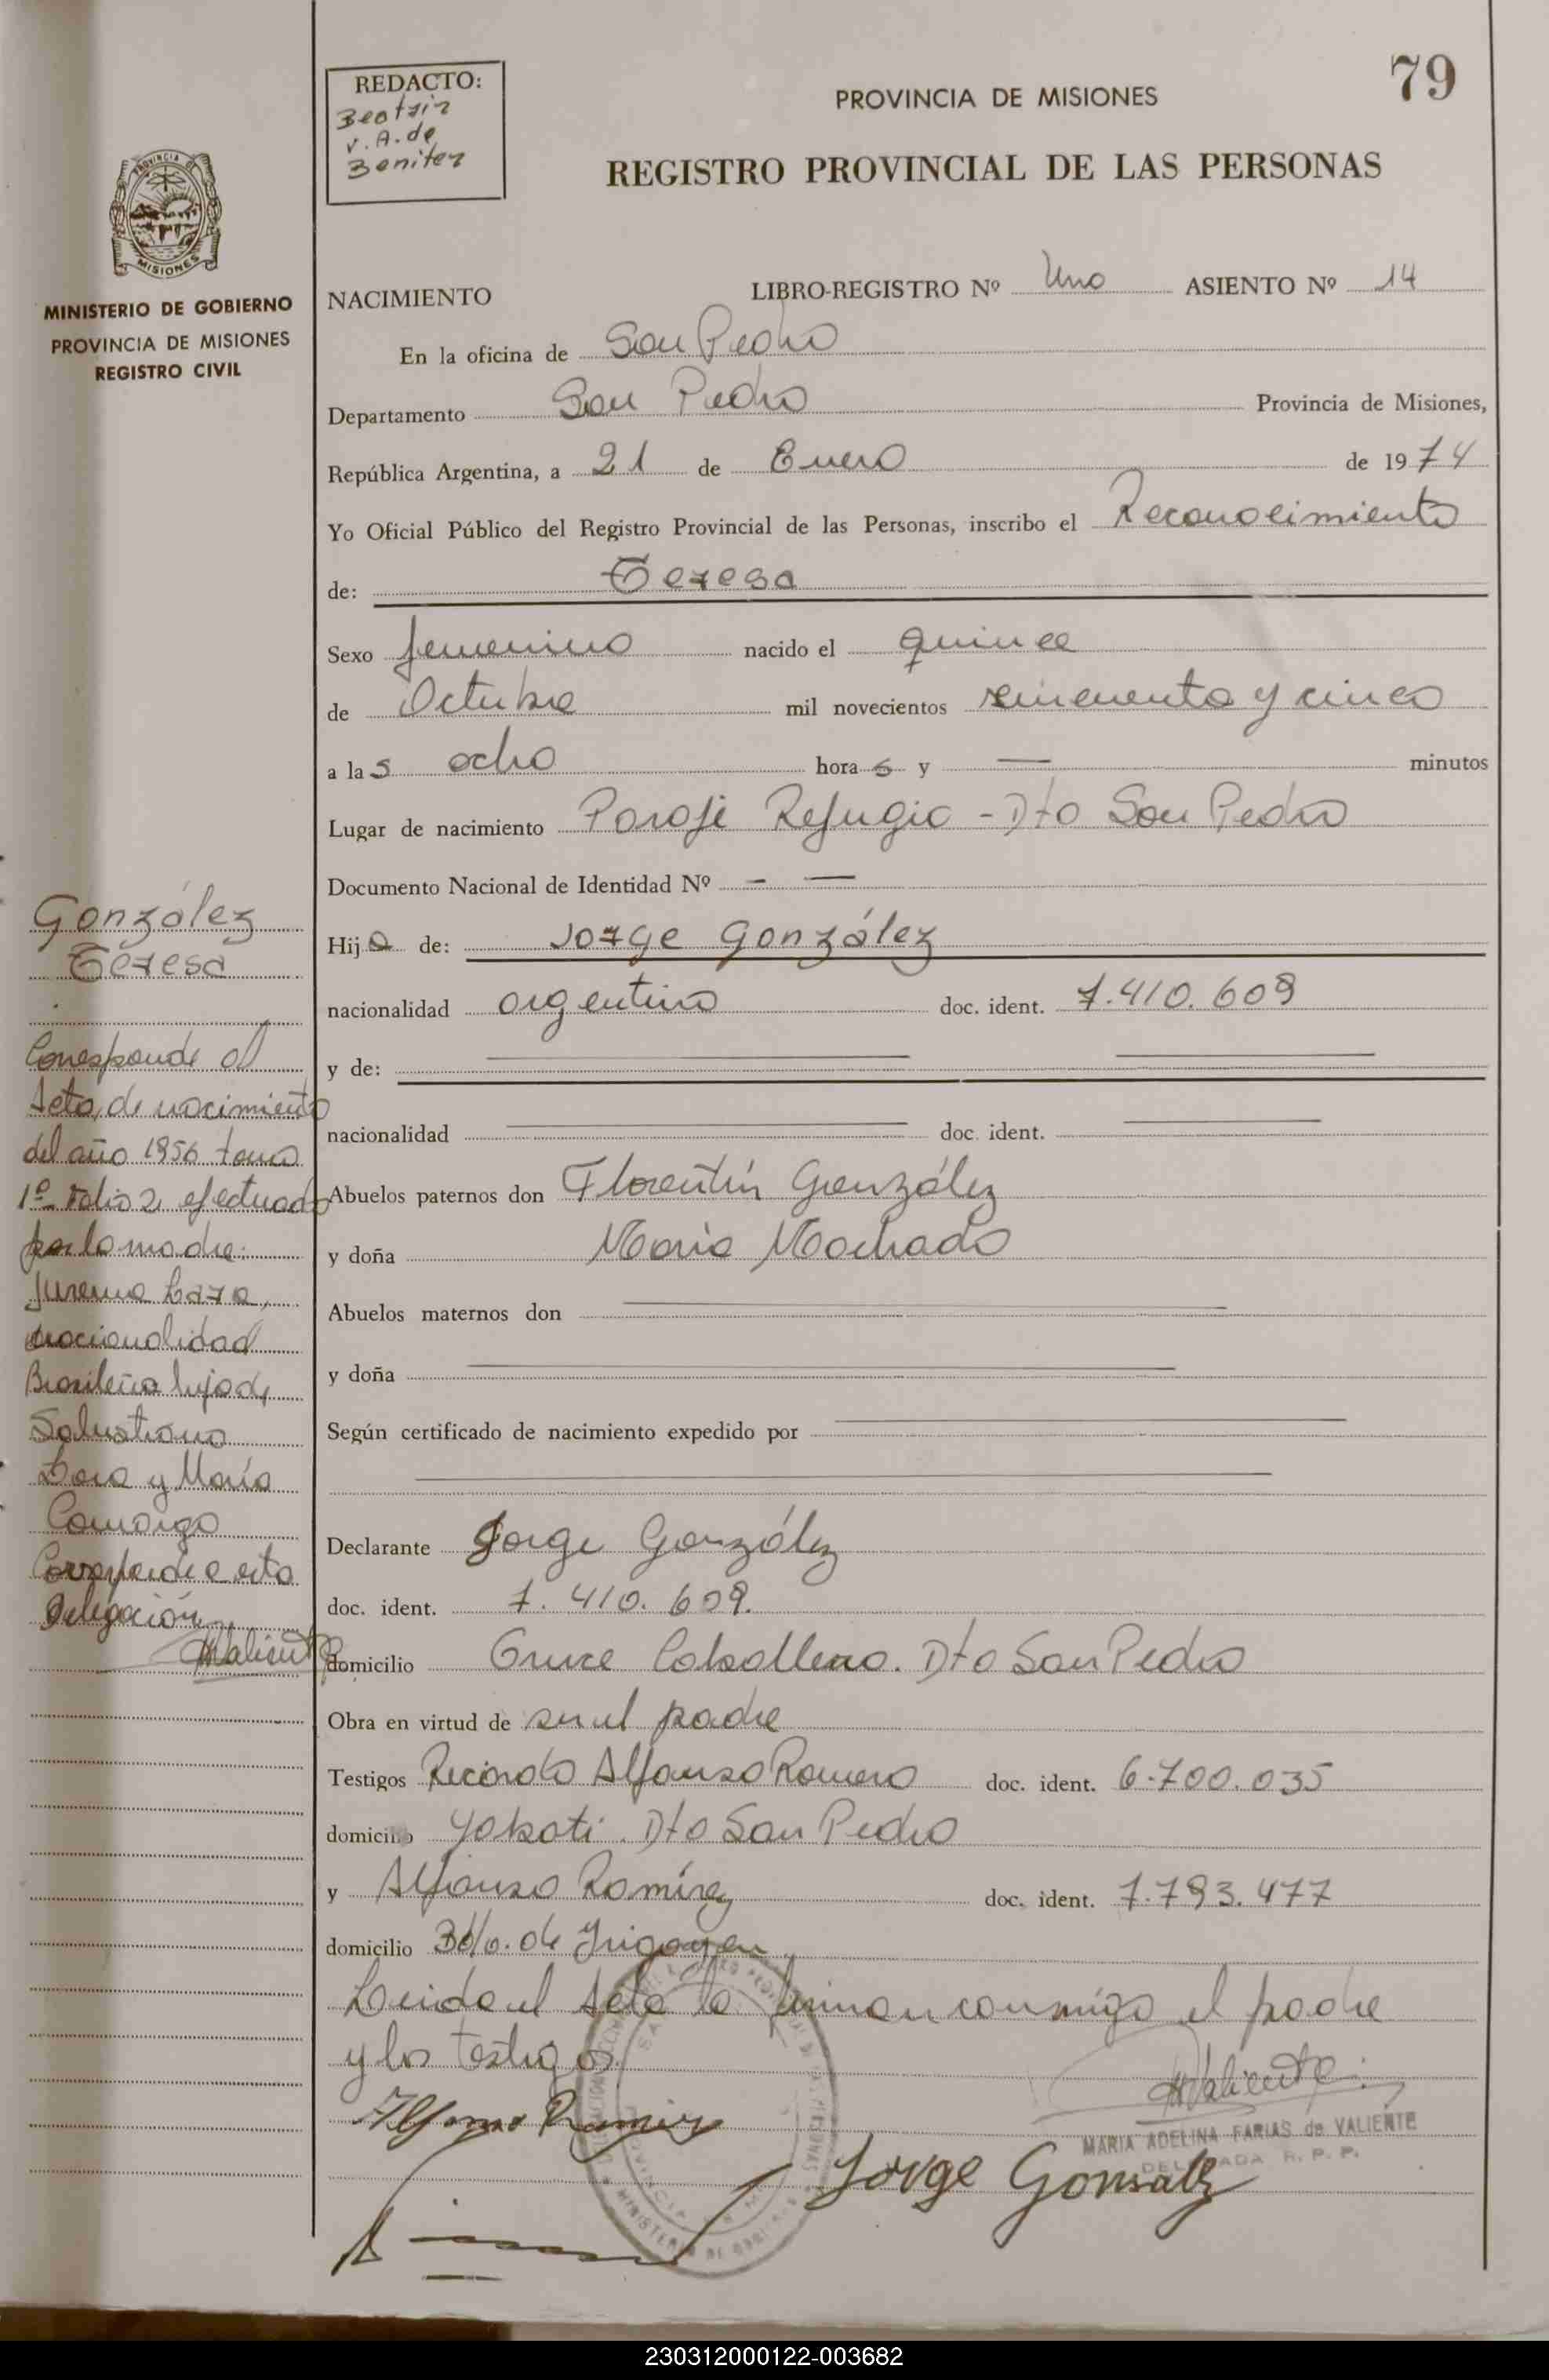 79
REDACTO:
Beatriz
v. A. de
Benitez
PROVINCIA DE MISIONES
REGISTRO PROVINCIAL DE LAS PERSONAS
PROVINCIA DE
MISIONES
MINISTERIO DE GOBIERNO
PROVINCIA DE MISIONES
REGISTRO CIVIL
NACIMIENTO LIBRO-REGISTRO Nº Uno ASIENTO Nº 14
En la oficina de San Pedro
Departamento San Pedro Provincia de Misiones,
República Argentina, a 21 de Enero de 1974
Yo Oficial Público del Registro Provincial de las Personas, inscribo el Reconocimiento
de: Teresa
Sexo femenino nacido el quince
de Octubre mil novecientos cincuenta y cinco
a las ocho horas y — minutos
Lugar de nacimiento Paraje Refugio - Dto San Pedro
Documento Nacional de Identidad Nº - —
Hija de: Jorge González
nacionalidad argentino doc. ident. 7.410.609
y de:
nacionalidad doc. ident.
Abuelos paternos don Florentín González
y doña María Machado
Abuelos maternos don
y doña
Según certificado de nacimiento expedido por
Declarante Jorge González
doc. ident. 7.410.609.
Domicilio Cruce Caballero. Dto San Pedro
Obra en virtud de ser el padre
Testigos Ricardo Alfonso Romero doc. ident. 6.700.035
domicilio Yabotí. Dto San Pedro
y Alfonso Ramírez doc. ident. 7.793.477
domicilio Bdo. de Irigoyen
Leida el Acta la firman conmigo el padre
y los testigos.
González
Teresa
Corresponde al
Acta de nacimiento
del año 1956 tomo
1º Folio 2 efectuado
por la madre
Lara,
nacionalidad
Brasileña hija de
Salustiano
Lara y María
Camargo
Corresponde a esta
Delegación
HValiente
HValiente
MARIA ADELINA FARIAS de VALIENTE
DELEGADA R. P. P.
Alfonso Ramirez
Jorge Gonsalz
230312000122-003682